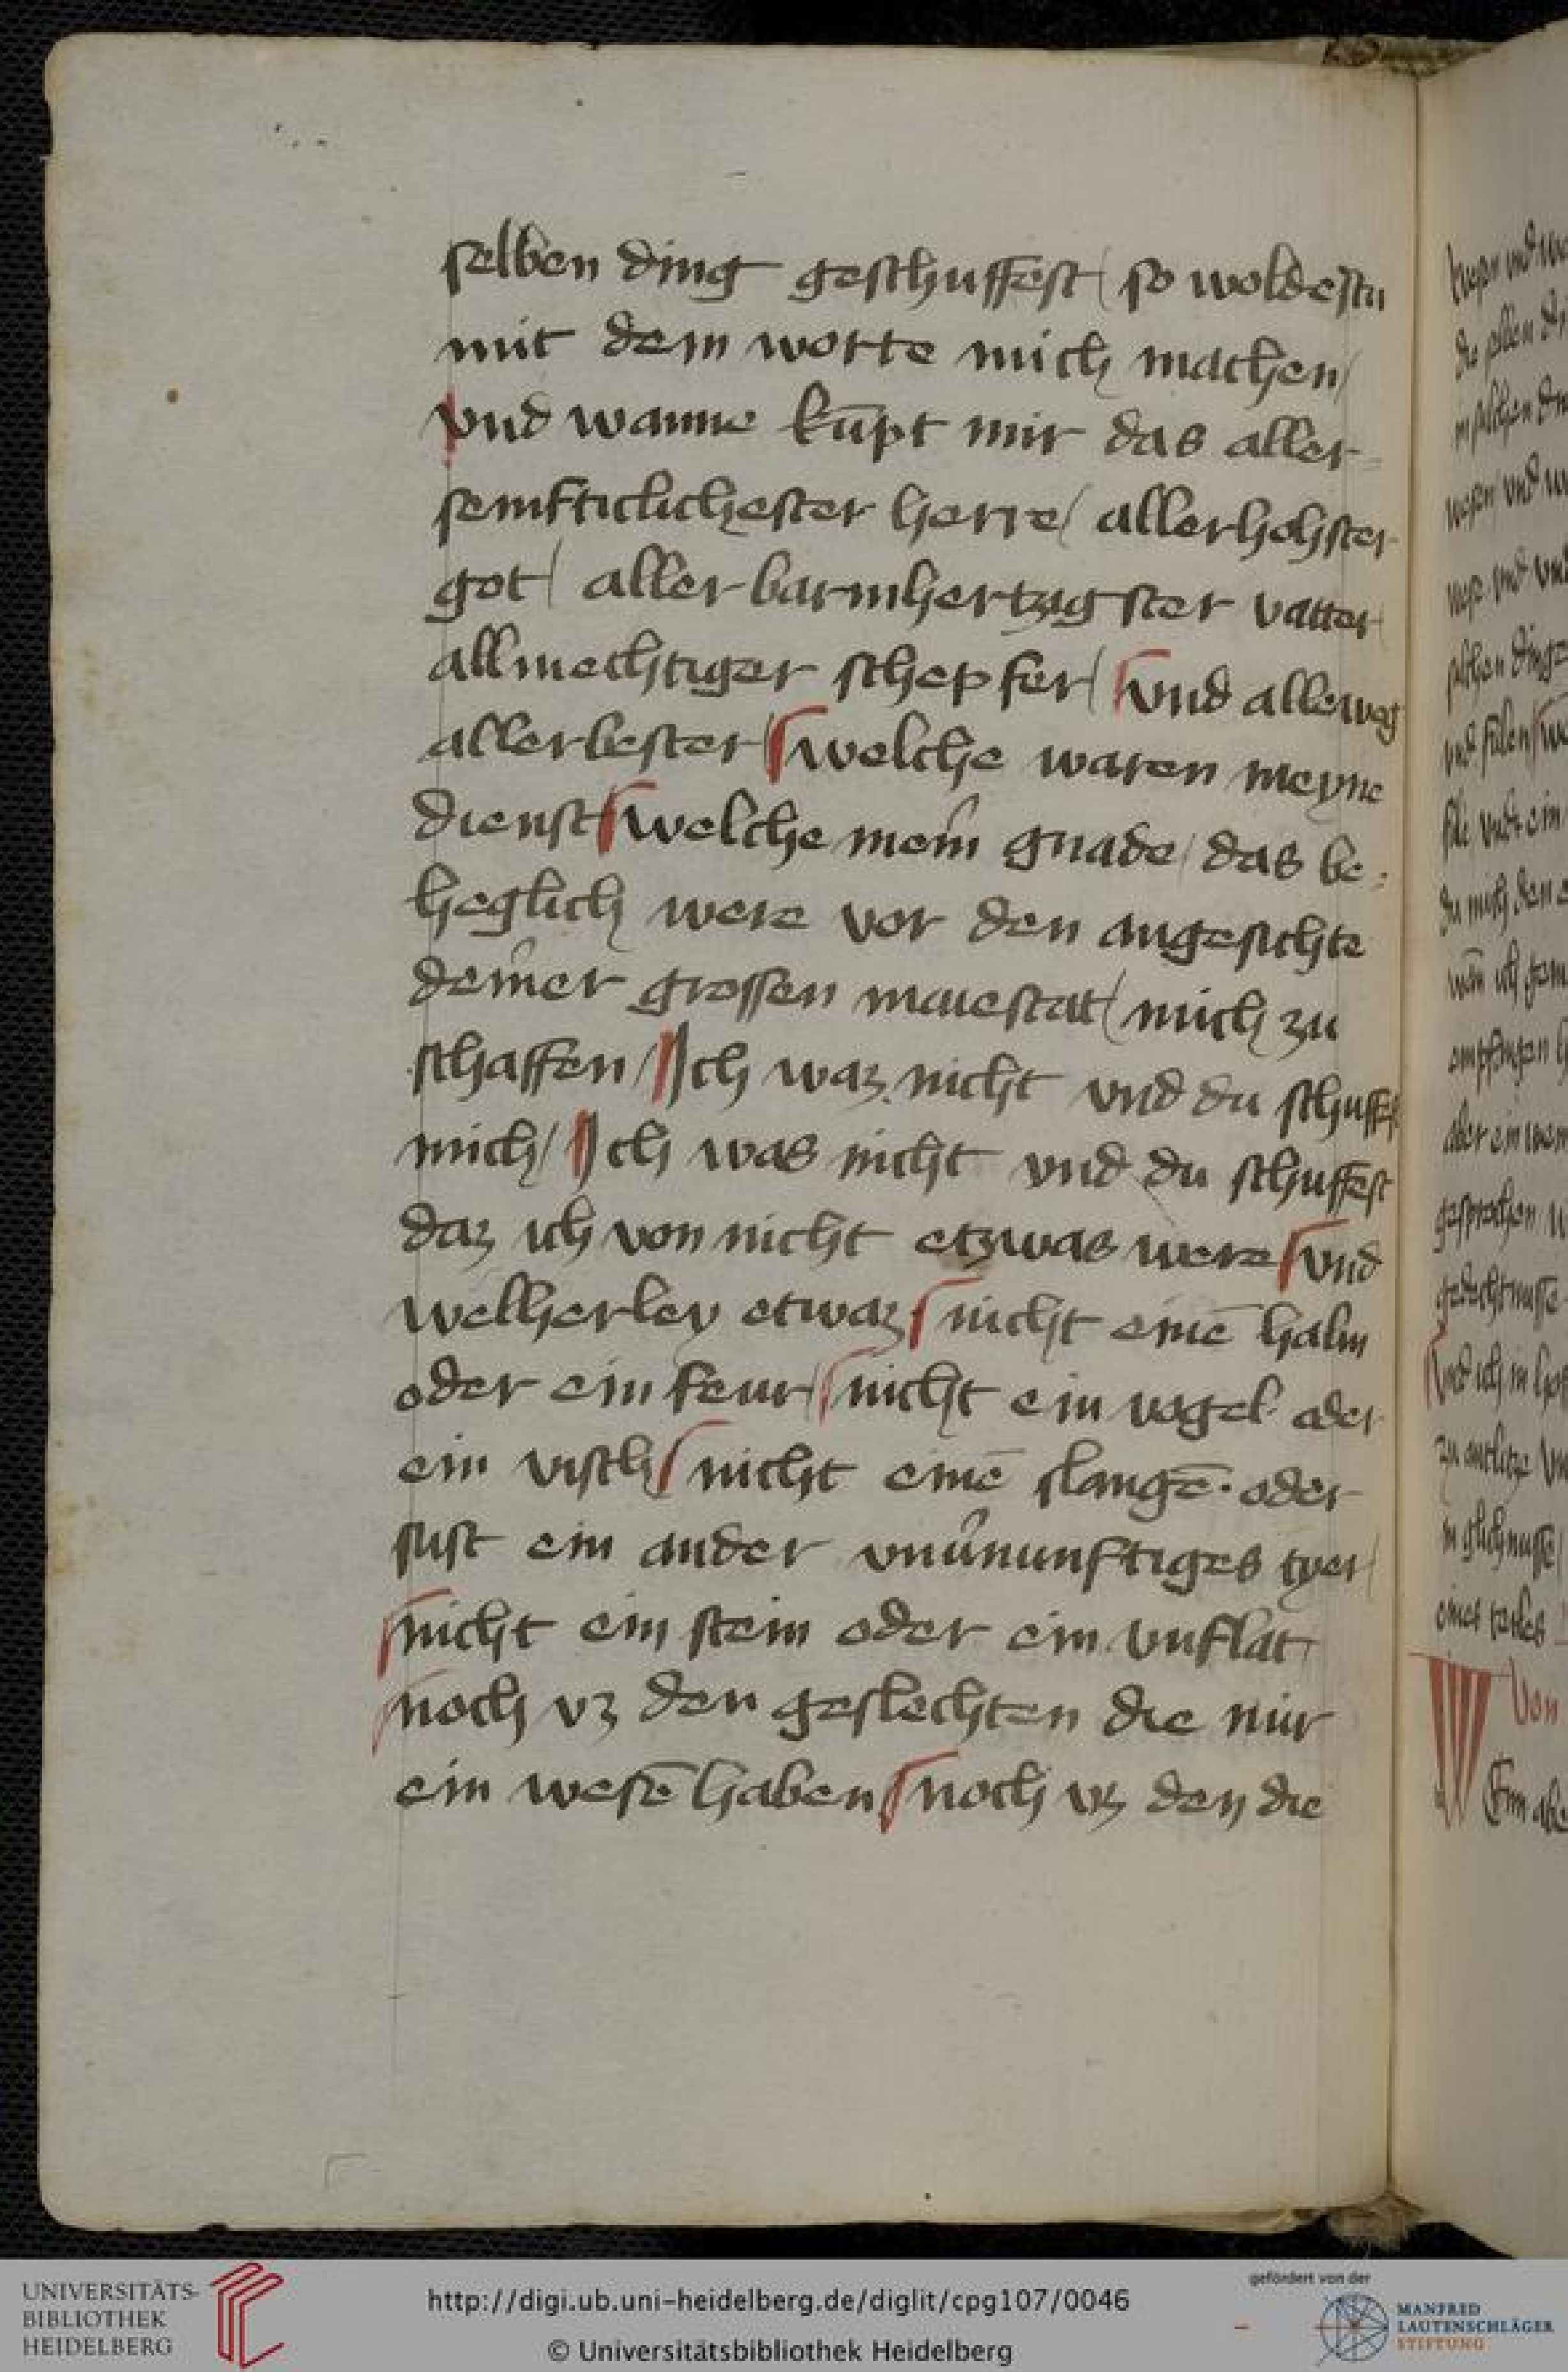 selben ding geschuffest / so woldestu
mit dem wortte mich machen /
vnd wanne kūpt mir das aller
semfticlichester herre / allerhohster
got / aller barmhertzigster vatter
allmechtiger schepfer / vnd alleweg
allerbester / welche waren meyne
dienst / welche mein gnade / das be
heglich were vor den angesichte
deiner grossen maiestat / mich zu
schaffen / Ich waz nicht vnd du schuffest
mich / Ich was nicht vnd du schuffest
daz ich von nicht etzwas were / vnd
welherley etwaz / nicht einē halm
oder ein feur / nicht ein vogel oder
ein visch / nicht einē slangē · oder
sust ein ander vnuernunftiges tyer /
nicht ein stein oder ein vnflat
noch vz den geslechten die nür
ein wesē haben / noch vz den die
Von
UNIVERSITÄTS-
BIBLIOTHEK
HEIDELBERG
http://digi.ub.uni-heidelberg.de/diglit/cpg107/0046
© Universitätsbibliothek Heidelberg
gefördert von der
MANFRED
LAUTENSCHLÄGER
STIFTUNG